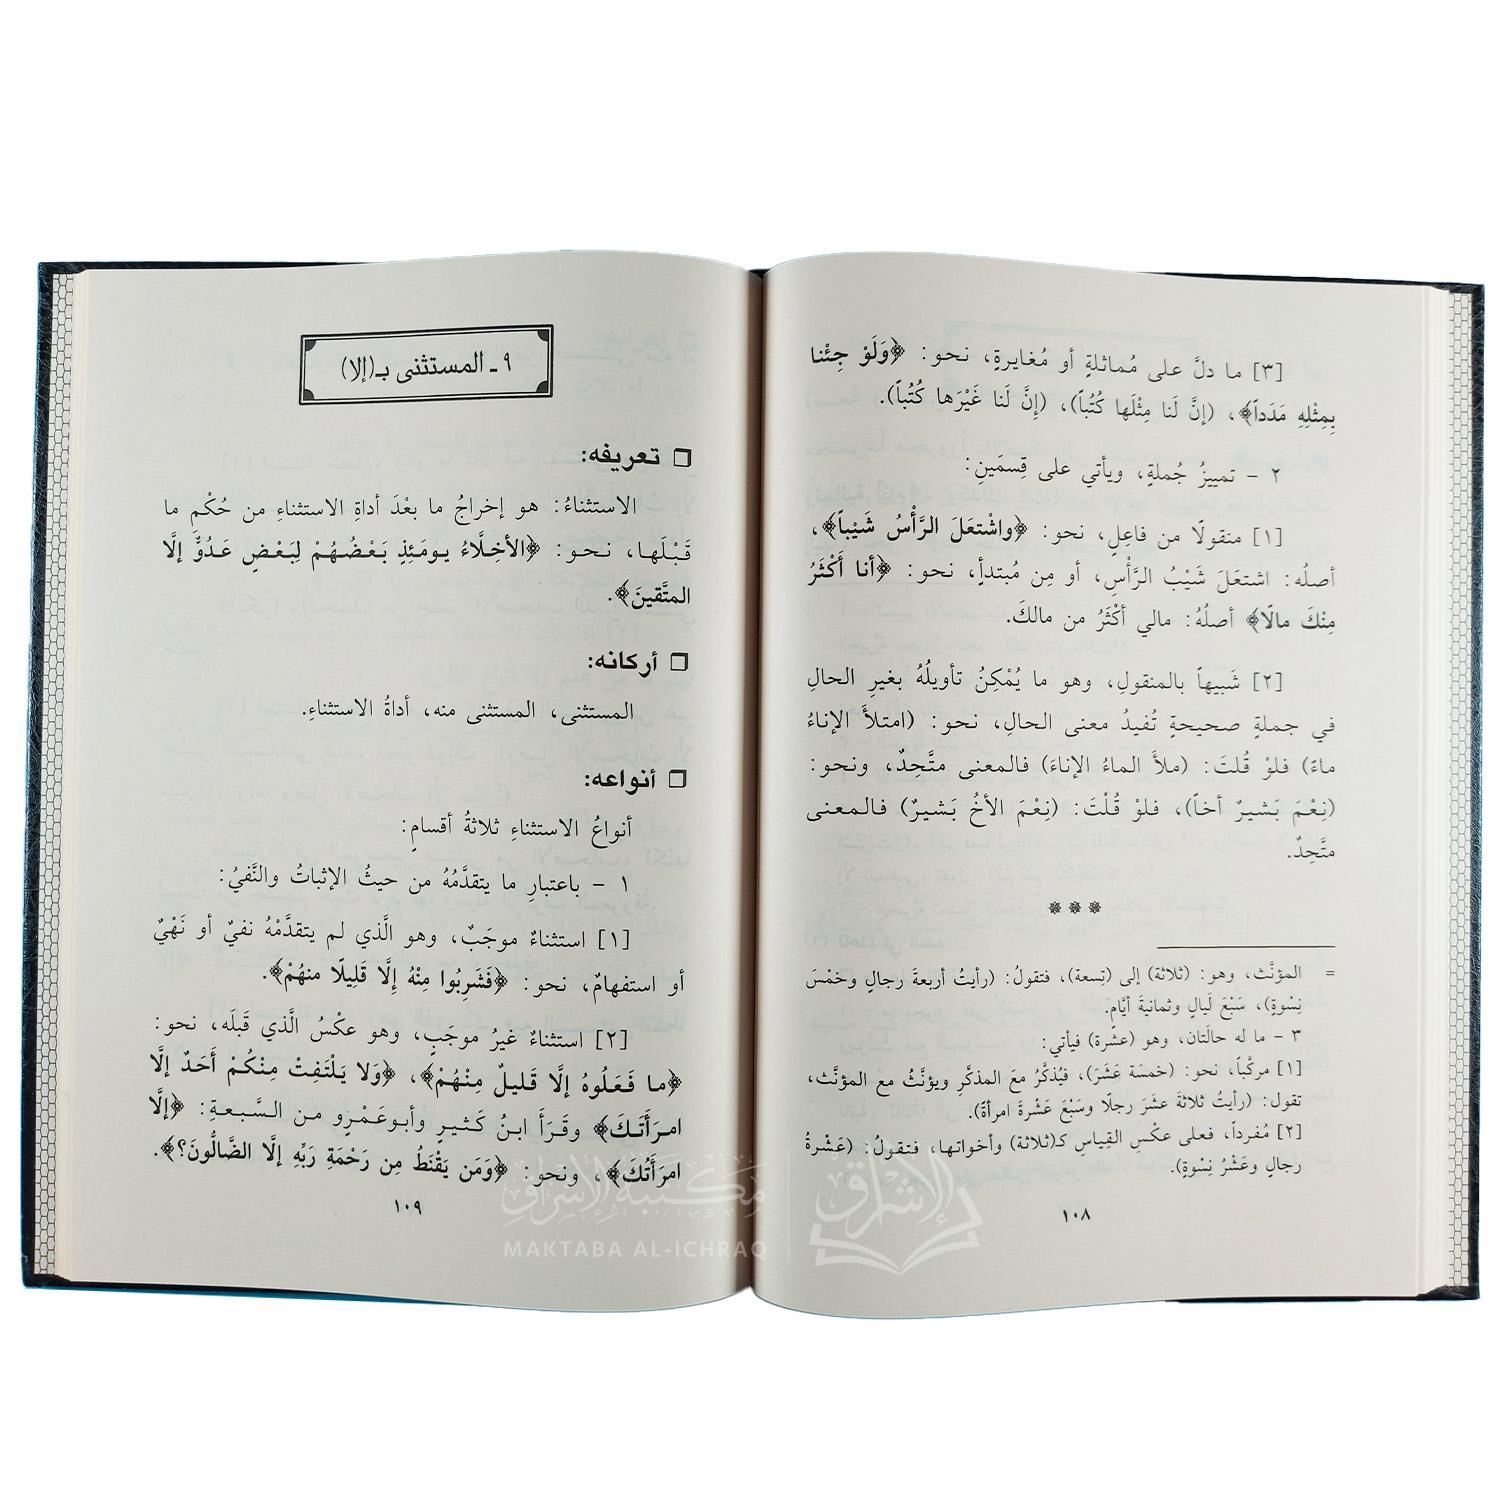 [٣] ما دلَّ على مُماثلةٍ أو مُغايرةٍ، نحو: ﴿وَلَوْ جِئْنا
بِمِثْلِهِ مَدَداً﴾، (إنَّ لَنا مِثْلَها كُتُباً)، (إنَّ لَنا غَيْرَها كُتُباً).
٢ - تمييزُ جُملةٍ، ويأتي على قِسمَينِ:
[١] منقولًا من فاعِلٍ، نحو: ﴿واشْتعَلَ الرَّأْسُ شَيْباً﴾،
أصلُه: اشتعَلَ شَيْبُ الرَّأْسِ، أو مِن مُبتدأٍ، نحو: ﴿أنا أَكْثَرُ
مِنْكَ مالًا﴾ أصلُهُ: مالي أكْثَرُ من مالكَ.
[٢] شَبيهاً بالمنقولِ، وهو ما يُمْكِنُ تأويلُهُ بغيرِ الحالِ
في جملةٍ صحيحةٍ تُفيدُ معنى الحالِ، نحو: (امتلأَ الإناءُ
ماءً) فلوْ قُلتَ: (ملأَ الماءُ الإناءَ) فالمعنى متَّحِدٌ، ونحو:
(نِعْمَ بَشيرٌ أخاً)، فلوْ قُلْتَ: (نِعْمَ الأخُ بَشيرٌ) فالمعنى
متَّحِدٌ.
***
= المؤنَّث، وهو: (ثلاثة) إلى (تِسعة)، فتقولُ: (رأيتُ أربعةَ رجالٍ وخمْسَ
نِسْوةٍ)، سَبْعَ لَيالٍ وثمانيةَ أيَّامٍ.
٣ - ما له حالَتان، وهو (عشْرة) فيأتي:
[١] مركَّباً، نحو: (خمسَة عَشَرَ)، فيُذكَّرُ معَ المذكَّرِ ويؤنَّثُ مع المؤنَّث،
تقول: (رأيتُ ثلاثةَ عشَرَ رجلًا وسَبْعَ عَشْرةَ امرأةً).
[٢] مُفرداً، فعلى عكْسِ القِياسِ كـ(ثلاثة) وأخواتها، فتقولُ: (عَشْرةُ
رجالٍ وعَشْرُ نِسْوةٍ).
١٠٨
٩ - المستثنى بـ(إلا)
تعريفه:
الاستثناءُ: هو إخراجُ ما بعْدَ أداةِ الاستثناءِ من حُكْمِ ما
قَبْلَها، نحو: ﴿الأخِلَّاءُ يومَئِذٍ بَعْضُهُمْ لِبَعْضٍ عَدُوٌّ إلَّا
المتَّقينَ﴾.
أركانه:
المستثنى، المستثنى منه، أداةُ الاستثناءِ.
أنواعه:
أنواعُ الاستثناءِ ثلاثةُ أقسامٍ:
١ - باعتبارِ ما يتقدَّمُهُ من حيثُ الإثباتُ والنَّفيُ:
[١] استثناءٌ موجَبٌ، وهو الَّذي لم يتقدَّمْهُ نفيٌ أو نَهْيٌ
أو استفهامٌ، نحو: ﴿فَشَرِبُوا مِنْهُ إلَّا قَلِيلًا منهُمْ﴾.
[٢] استثناءٌ غيرُ موجَبٍ، وهو عكْسُ الَّذي قَبلَه، نحو:
﴿ما فَعَلُوهُ إلَّا قَليلٌ مِنْهُمْ﴾، ﴿وَلا يَلْتَفِتْ مِنْكُمْ أَحَدٌ إلَّا
امرَأَتَكَ﴾ وقَرَأَ ابنُ كَثيرٍ وأبوعَمْرٍو من السَّبعةِ: ﴿إلَّا
امرَأَتُكَ﴾، ونحو: ﴿وَمَن يَقْنَطُ مِن رَحْمَةِ رَبِّهِ إلَّا الضَّالُّونَ؟﴾.
١٠٩
مكتبة الإشراق
MAKTABA AL-ICHRAQ
الإشراق